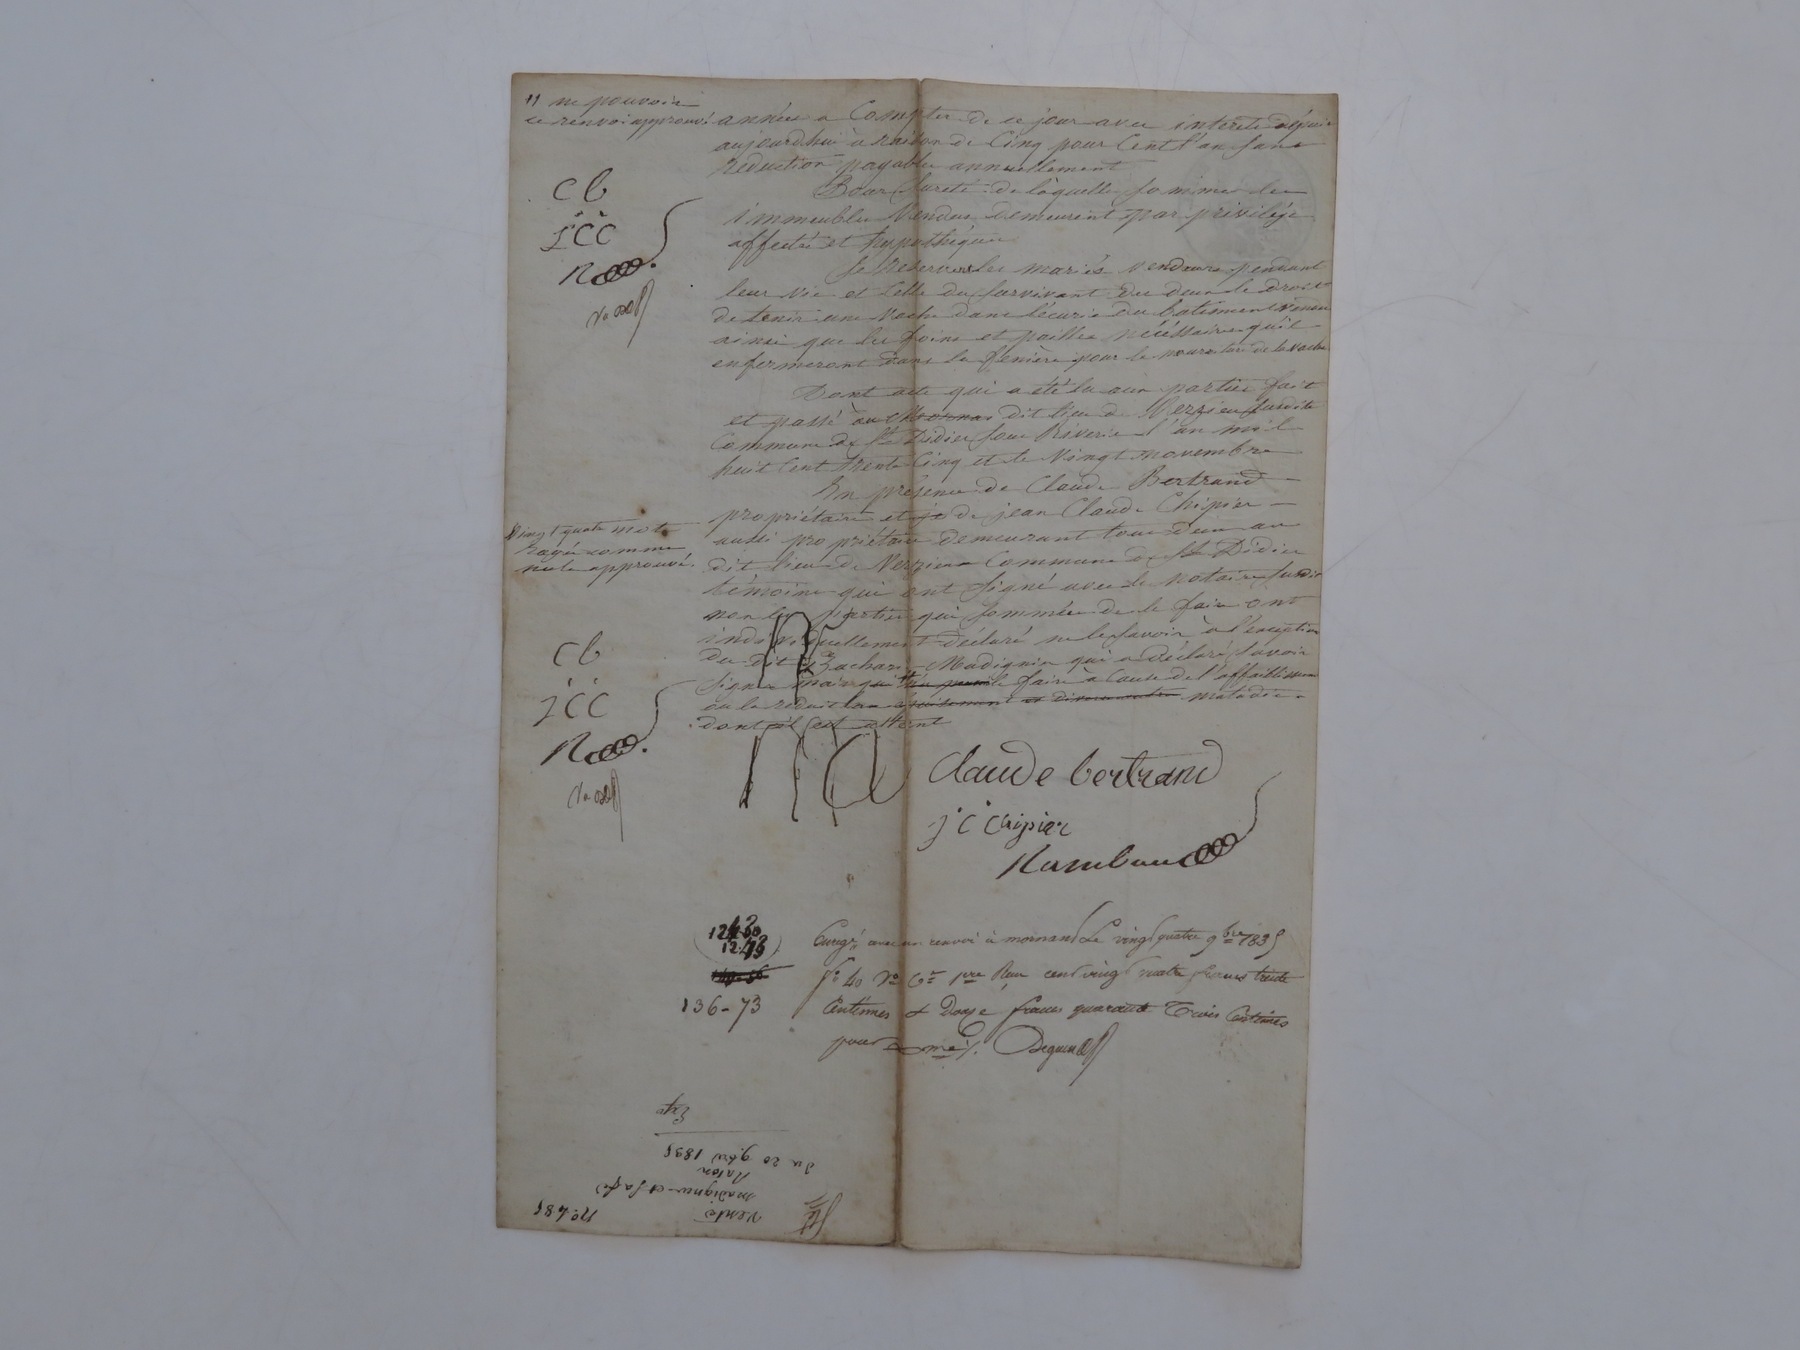 11 ne pouvoir
ce renvoi approuvé
années a Compter de ce jour avec interets depuis
aujourdhui à raison de Cinq pour Cent l'an sans
Réduction payable annuellement
Pour sureté de laquelle somme les
immeubles Vendus demeurent par privilége
affectés et hypothéqués
Se Réservent les mariés vendeurs pendant
leur vie et celle du survivant des deux le droit
de tenir une Vache dans l'écurie du batiment Vendu
ainsi que les foins et pailles nécéssaires qu'ils
enfermeront dans la fenière pour la nourriture de la vache
Dont acte qui a été lu aux parties fait
et passé au dit lieu de Verzieu susdite
Commune de St Didier sous Riverie l'an mil
huit Cent trente Cinq et le Vingt novembre
En présence de Claude Bertrand
propriétaire et de jean Claude Chipier
aussi propriétaire demeurant tous deux au
dit lieu de Verzieu Commune de St Didier
témoins qui ont signé avec le notaire susdit
non les parties qui sommées de le faire ont
individuellement déclaré ne le savoir à l'exception
du dit Zacharie Madignier qui a déclaré savoir
signer mais le faire à Cause de l'affaiblissement
ou le reduit la maladie
dont il est atteint
Vingt quatre mots
rayés comme
nuls approuvés
C b
j C C
R
C b
j C C
R
Claude bertrand
j C Chipier
Rambaud
12.43
136-73
Enregé avec un renvoi à mornant Le vingt quatre 9bre 1835
fo 40 Vo Ce 1re Reçu cent vingt quatre francs trente
Centimes & Douze francs quarante Trois Centimes
pour
No 485
Vente
Madignier et sa fe
du 20 9bre 1835
Exp